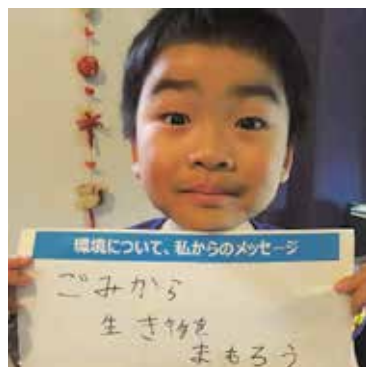 環境について、私からのメッセージ
ごみから
生き物を
まもろう